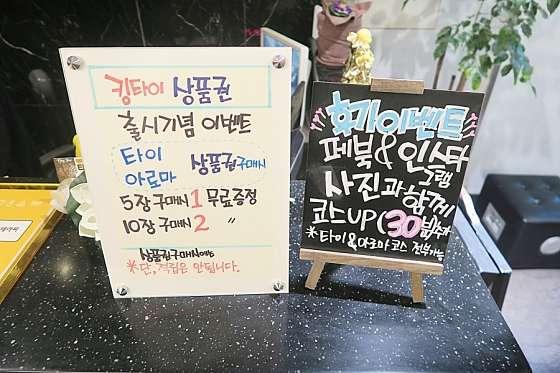 킹타이 상품권
출시기념 이벤트
타이
아로마 상품권구매시
5장 구매시 1 무료증정
10장 구매시 2 〃
상품권구매시에만
※단, 적립은 안됩니다.
후기이벤트
페북&인스타
그램
사진과 함께
코스UP(30분추가
※타이&아로마 코스 전부가능